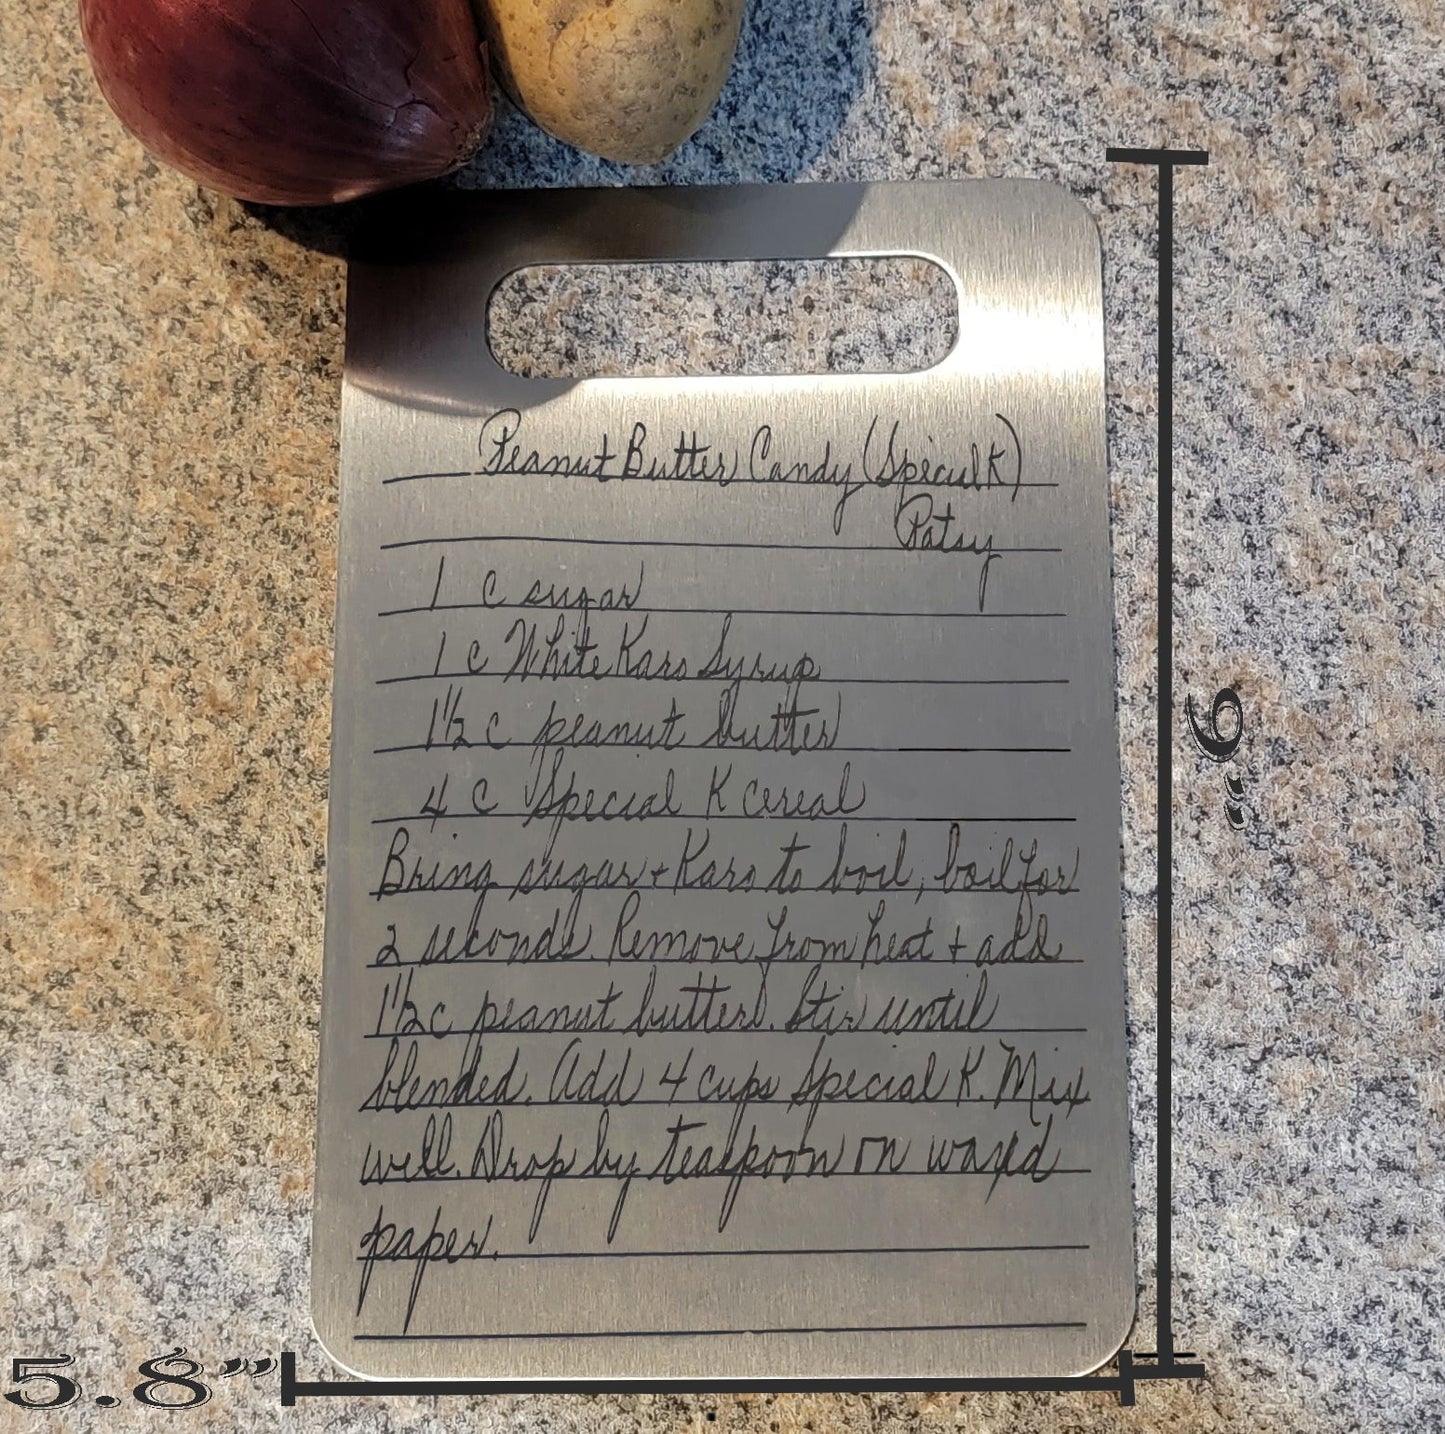 Peanut Butter Candy (Special K)
Patsy
1 c sugar
1 c White Karo Syrup
1 1/2 c peanut butter
4 c Special K cereal
Bring sugar + Karo to boil, boil for
2 seconds. Remove from heat + add
1 1/2 c peanut butter. Stir until
blended. Add 4 cups Special K. Mix
well. Drop by teaspoon on waxed
paper.
9"
5.8"